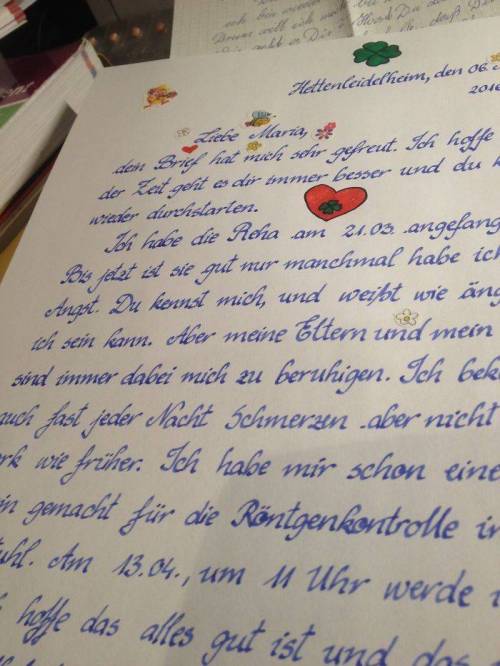 Hettenleidelheim, den 06.
2016
Liebe Maria,
dein Brief hat mich sehr gefreut. Ich hoffe
der Zeit geht es dir immer besser und du
wieder durchstarten.
Ich habe die Reha am 21.03. angefang
Bis jetzt ist sie gut nur manchmal habe ich
Angst. Du kennst mich, und weißt wie äng
ich sein kann. Aber meine Eltern und mein
sind immer dabei mich zu beruhigen. Ich bek
auch fast jeder Nacht Schmerzen aber nicht
rk wie früher. Ich habe mir schon eine
in gemacht für die Röntgenkontrolle in
uhl. Am 13.04., um 11 Uhr werde
hoffe das alles gut ist und das